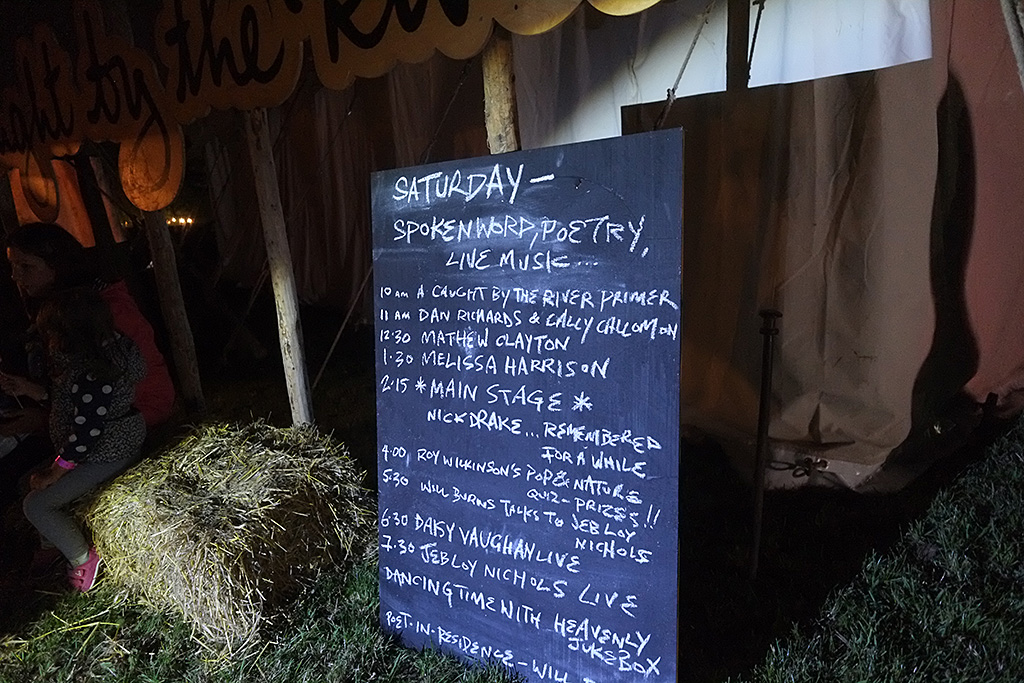 ught by the Riv
SATURDAY -
SPOKEN WORD, POETRY,
LIVE MUSIC ....
10 am A CAUGHT BY THE RIVER PRIMER
11 am DAN RICHARDS & CALLY CALLOMON
12:30 MATHEW CLAYTON
1:30 MELISSA HARRISON
2:15 *MAIN STAGE *
NICK DRAKE... REMEMBERED
FOR A WHILE
4:00, ROY WILKINSON'S POP & NATURE
QUIZ - PRIZES!!
5:30 WILL BURNS TALKS TO JEB LOY
NICHOLS
6:30 DAISY VAUGHAN LIVE
7:30 JEB LOY NICHOLS LIVE
DANCING TIME WITH HEAVENLY
JUKEBOX
POET-IN-RESIDENCE - WILL